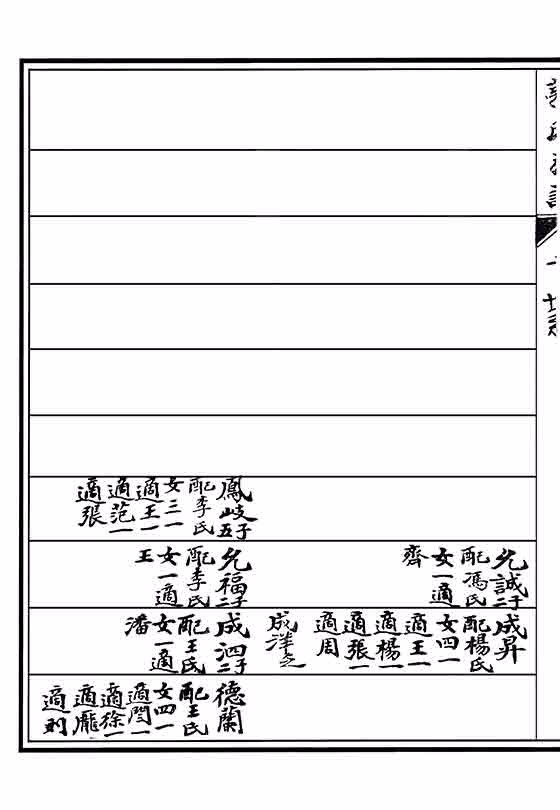 鳳岐五子
配李氏
女三一
適王一
適范一
適張
允誠二子
配馮氏
女一適
齊
允福二子
配李氏
女一適
王
成昇
配楊氏
女四一
適王一
適楊一
適張一
適周
成泗二子
配王氏
女一適
潘
德蘭
配王氏
女四一
適閆一
適徐一
適龐一